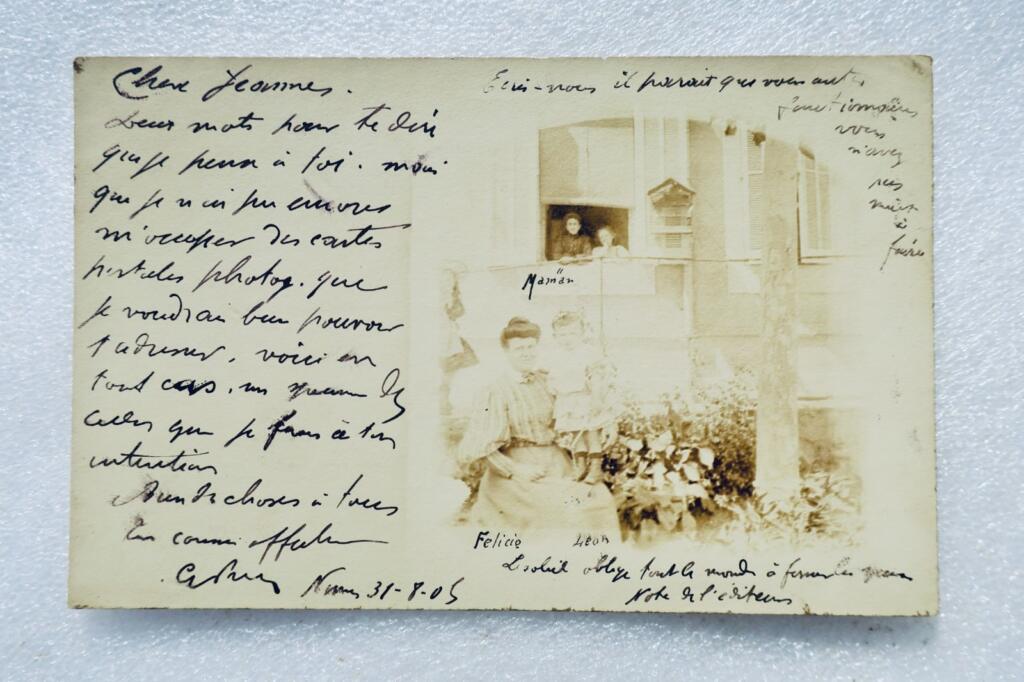 Chere Jeannes.
Deux mots pour te dire
que je pense à toi. mais
que je n'ai pu encores
m'occuper des cartes
postales photog. que
je voudrais bien pouvoir
t'adresser. voici en
tout cas. un de
celles que je fais à ton
intention
de choses à tous
Nimes 31-8-05
Ecris-nous il parait que vous autres
fonctionnaires
vous
n'avez
rien
à
faire
Maman
Felicie Léon
Le soleil oblige tout le monde à fermer les yeux
Note de l'éditeur